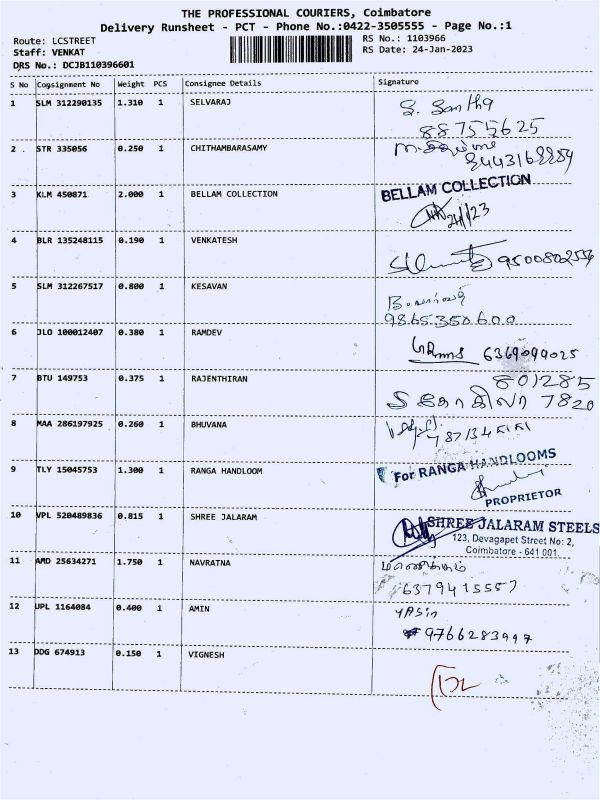 THE PROFESSIONAL COURIERS, Coimbatore
Delivery Runsheet - PCT - Phone No.:0422-3505555 - Page No.:1
Route: LCSTREET
RS No.: 1103966
Staff: VENKAT
RS Date: 24-Jan-2023
DRS No.: DCJB110396601
S No Consignment No Weight PCS Consignee Details Signature
1 SLM 312290135 1.310 1 SELVARAJ S. Santha
8875 5625
2 STR 335056 0.250 1 CHITHAMBARASAMY
3 KLM 450871 2.000 1 BELLAM COLLECTION BELLAM COLLECTION
24/1/23
4 BLR 135248115 0.190 1 VENKATESH
5 SLM 312267517 0.800 1 KESAVAN
9865350600
6 JLO 100012407 0.380 1 RAMDEV 6369099025
7 BTU 149753 0.375 1 RAJENTHIRAN 801285
S கோகிலா 7820
8 MAA 286197925 0.260 1 BHUVANA
9 TLY 15045753 1.300 1 RANGA HANDLOOM For RANGA HANDLOOMS
PROPRIETOR
10 VPL 520489836 0.815 1 SHREE JALARAM SHREE JALARAM STEELS
123, Devagapet Street No: 2,
Coimbatore - 641 001.
11 AMD 25634271 1.750 1 NAVRATNA
6379415557
12 UPL 1164084 0.400 1 AMIN YASin
9766283997
13 DDG 674913 0.150 1 VIGNESH